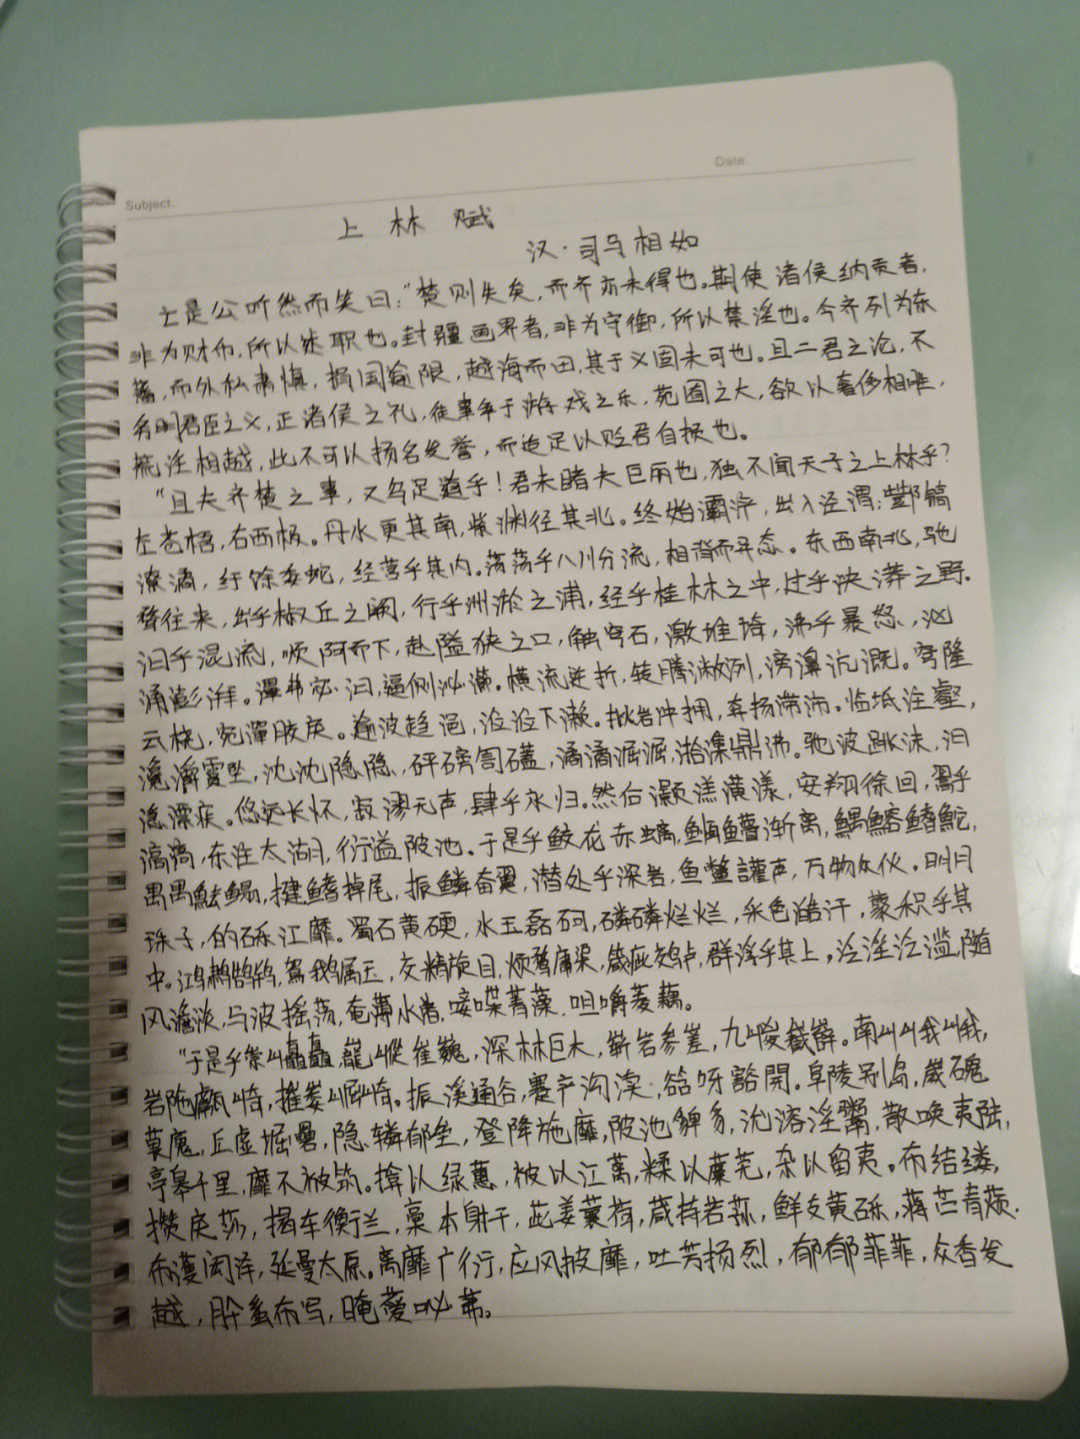 Subject.
Date.
上林赋
汉·司马相如
亡是公听然而笑曰:"楚则失矣,而齐亦未得也。夫使诸侯纳贡者,
非为财币,所以述职也。封疆画界者,非为守御,所以禁淫也。今齐列为东
藩,而外私肃慎,捐国逾限,越海而田,其于义固未可也。且二君之论,不
务明君臣之义,正诸侯之礼,徒事争于游戏之乐,苑囿之大,欲以奢侈相胜,
荒淫相越,此不可以扬名发誉,而适足以贬君自损也。
"且夫齐楚之事,又乌足道乎!君未睹夫巨丽也,独不闻天子之上林乎?
左苍梧,右西极。丹水更其南,紫渊径其北。终始灞浐,出入泾渭;酆镐
潦潏,纡馀委蛇,经营乎其内。荡荡乎八川分流,相背而异态。东西南北,驰
骛往来,出乎椒丘之阙,行乎洲淤之浦,经乎桂林之中,过乎泱漭之野。
汩乎混流,顺阿而下,赴隘狭之口,触穹石,激堆埼,沸乎暴怒,汹
涌澎湃。滭弗宓汩,逼侧泌瀄。横流逆折,转腾潎洌,滂濞沆溉。穹隆
云桡,宛潬胶戾。逾波趋浥,涖涖下濑。批岩冲拥,奔扬滞沛。临坻注壑,
瀺灂霣坠,沈沈隐隐,砰磅訇礚,潏潏淈淈,湁潗鼎沸。驰波跳沫,汩
漂疾。悠远长怀,寂漻无声,肆乎永归。然后灏溔潢漾,安翔徐回,翯乎
滈滈,东注太湖,衍溢陂池。于是乎鲛龙赤螭,䱭䲛渐离,鰅鰫鳍鮀,
禺禺魼鳎,揵鳍掉尾,振鳞奋翼,潜处乎深岩,鱼鳖讙声,万物众伙。明月
珠子,的砾江靡。蜀石黄碝,水玉磊砢,磷磷烂烂,采色澔汗,藂积乎其
中。鸿鹔鹄鸨,鴐鹅属玉,交精旋目,烦鹜庸渠,箴疵䴔卢,群浮乎其上。泛淫泛滥,随
风澹淡,与波摇荡,奄薄水渚,唼喋菁藻,咀嚼菱藕。
"于是乎崇山矗矗,巃嵷崔巍,深林巨木,崭岩参差,九嵕嶻嶭。南山峨峨,
岩阤甗崎,摧崣崛崎。振溪通谷,蹇产沟渎,谽呀豁閜。阜陵别岛,崴磈
葨廆,丘虚堀礨,隐辚郁垒,登降施靡,陂池貏豸,沇溶淫鬻,散涣夷陆,
亭皋千里,靡不被筑。揜以绿蕙,被以江蓠,糅以蘪芜,杂以留夷。布结缕,
攒戾莎,揭车衡兰,稾本射干,茈姜蘘荷,葴持若荪,鲜支黄砾,蒋苎青薠,
布濩闳泽,延曼太原。离靡广衍,应风披靡,吐芳扬烈,郁郁菲菲,众香发
越,肸蠁布写,晻薆咇茀。